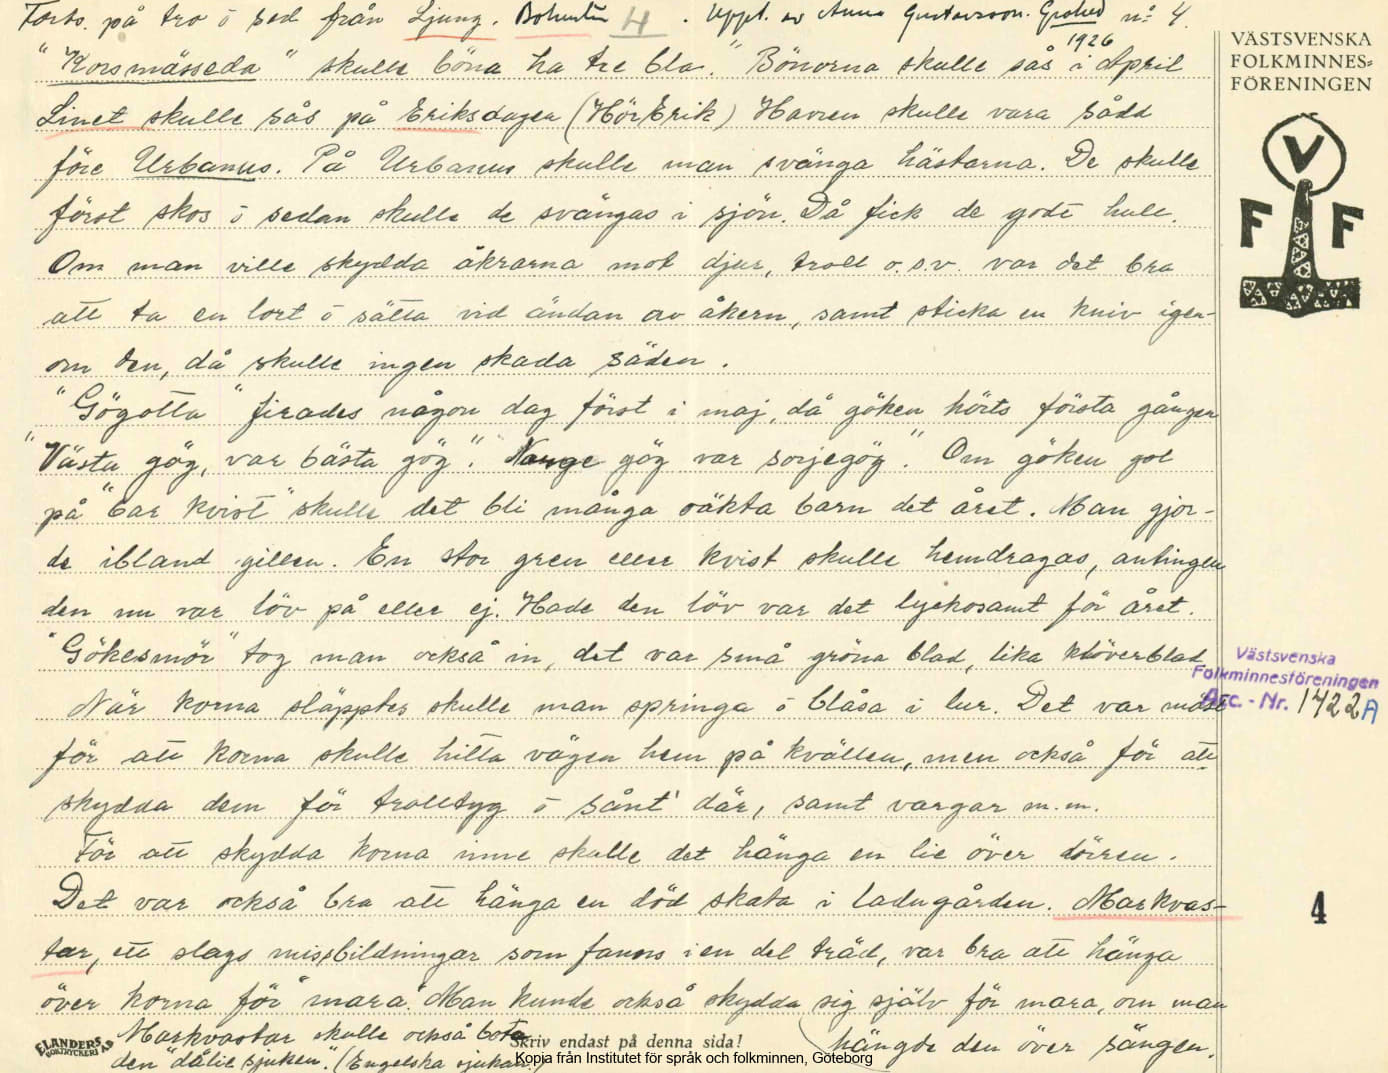 Forts. på tro ō sed från Ljung. Bohuslän 4. Uppt. av Anna Gustavsson. Grohed nº 4.
1926
"Korsmässeda" skulle böna ha tre bla." Bönorna skulle sås i April
Linet skulle sås på Eriksdagen (Hör Erik) Havren skulle vara sådd
före Urbanus. På Urbanus skulle man svänga hästarna. De skulle
först skos ō sedan skulle de svängas i sjön. Då fick de godt hull.
Om man ville skydda åkrarna mot djur, troll o.s.v. var det bra
att ta en lort ō sätta vid ändan av åkern, samt sticka en kniv igen-
om den, då skulle ingen skada säden.
"Gögotta" firades någon dag först i maj, då göken hörts första gången
"Västa gög, var bästa gög". Norge gög var sorjegög". Om göken gol
på "bar kvist" skulle det bli många oäkta barn det året. Man gjor-
de ibland gillen. En stor gren eller kvist skulle hemdragas, antingen
den nu var löv på eller ej. Hade den löv var det lyckosamt för året.
"Gökesmör" tog man också in, det var små gröna blad, lika klöverblad
När korna släpptes skulle man springa ō blåsa i lur. Det var mäst
för att korna skulle hitta vägen hem på kvällen, men också för att
skydda dem för trolltyg ō sånt' där, samt vargar m.m.
För att skydda korna inne skulle det hänga en lie över dörren.
Det var också bra att hänga en död skata i ladugården. Markvas-
tar, ett slags missbildningar som fanns i en del träd, var bra att hänga
över korna för "mara". Man kunde också skydda sig själv för mara, om man
hängde den över sängen.
Markvastar skulle också bota
den "dålie sjuken". (Engelska sjukan.)
VÄSTSVENSKA
FOLKMINNES=
FÖRENINGEN
V
F F
Västsvenska
Folkminnesföreningen
Acc. - Nr. 1422 A
4
ELANDERS
BOKTRYCKERI AB
Skriv endast på denna sida!
Kopia från Institutet för språk och folkminnen, Göteborg